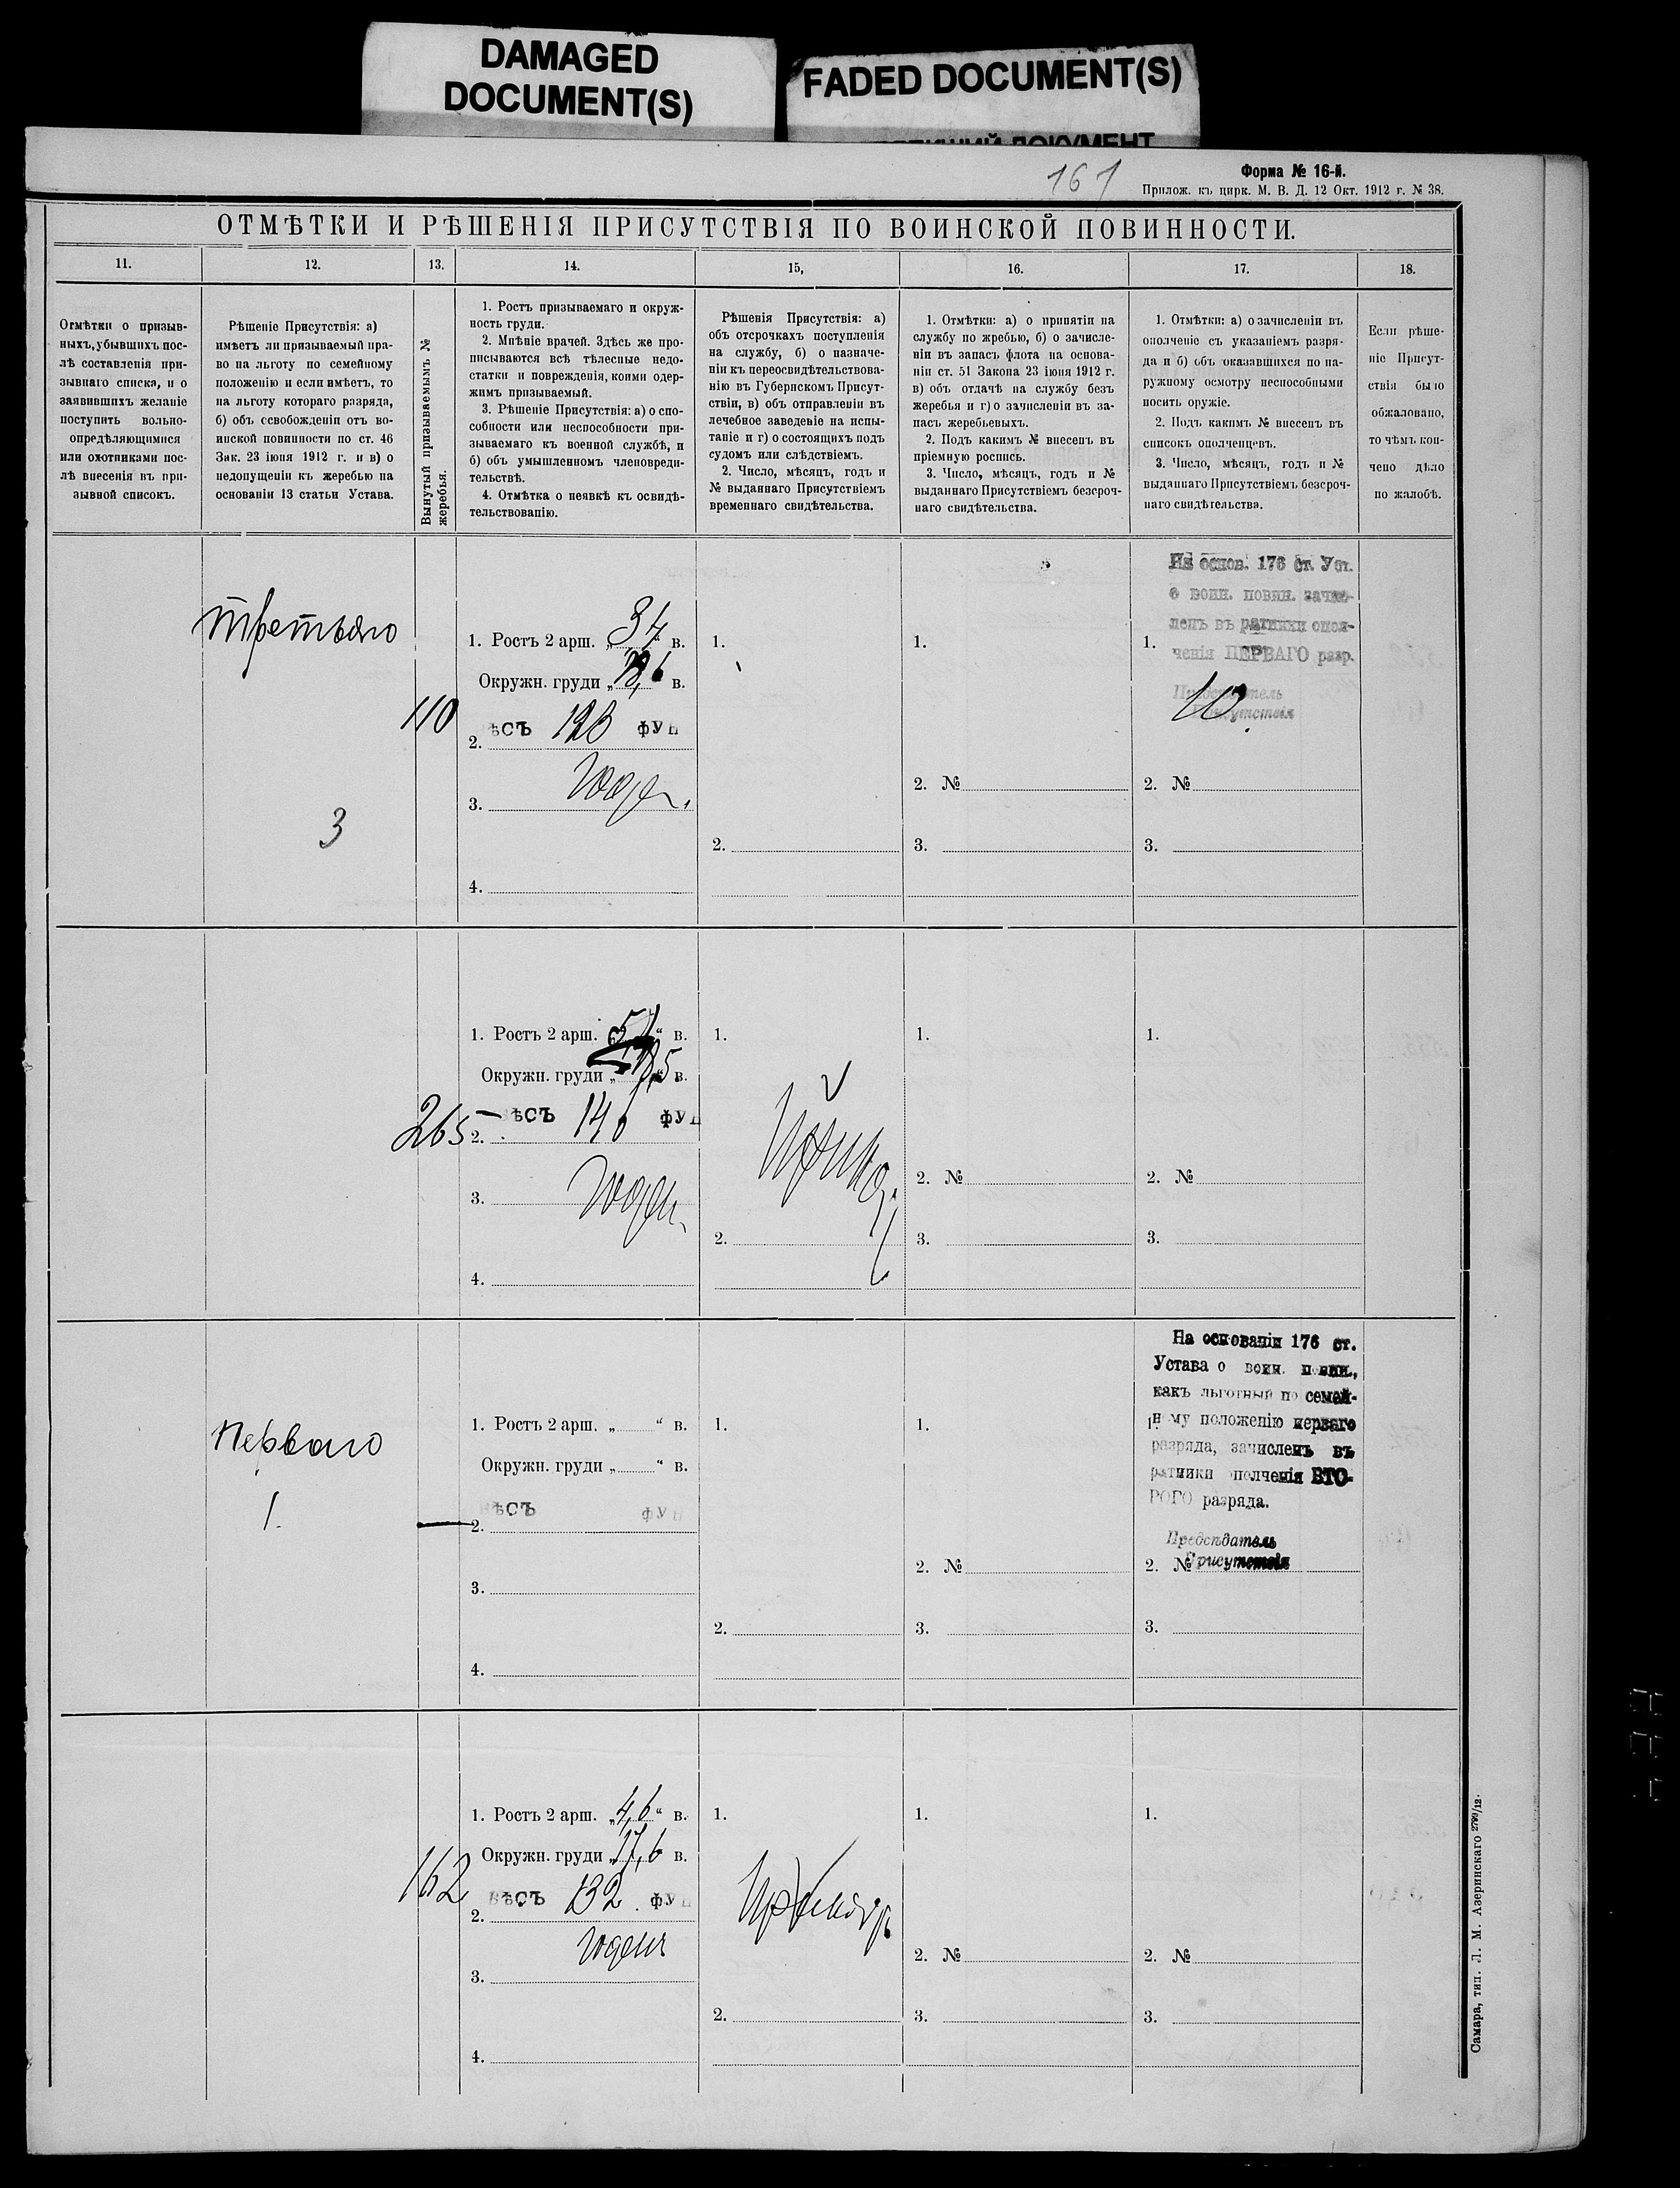 DAMAGED
DOCUMENT(S)
FADED DOCUMENT(S)
161
Форма № 16-й.
Прилож. къ цирк. М. В. Д. 12 Окт. 1912 г. № 38.
ОТМѢТКИ И РѢШЕНІЯ ПРИСУТСТВІЯ ПО ВОИНСКОЙ ПОВИННОСТИ.
11.
12.
13.
14.
15,
16.
17.
18.
Отмѣтки о призыв-
ныхъ, убывшихъ пос-
лѣ составленія при-
зывнаго списка, и о
заявившихъ желаніе
поступить вольно-
опредѣляющимися
или охотниками пос-
лѣ внесенія въ при-
зывной списокъ.
Рѣшеніе Присутствія: а)
имѣетъ ли призываемый пра-
во на льготу по семейному
положенію и если имѣетъ, то
на льготу котораго разряда,
б) объ освобожденіи отъ во-
инской повинности по ст. 46
Зак. 23 іюня 1912 г. и в) о
недопущеніи къ жеребью на
основаніи 13 статьи Устава.
Вынутый призываемымъ №
жеребья.
1. Ростъ призываемаго и окруж-
ность груди.
2. Мнѣніе врачей. Здѣсь же про-
писываются всѣ тѣлесные недо-
статки и поврежденія, коими одер-
жимъ призываемый.
3. Рѣшеніе Присутствія: а) о спо-
собности или неспособности при-
зываемаго къ военной службѣ, и
б) объ умышленномъ членовреди-
тельствѣ.
4. Отмѣтка о неявкѣ къ освидѣ-
тельствованію.
Рѣшенія Присутствія: а)
объ отсрочкахъ поступленія
на службу, б) о назначе-
ніи къ переосвидѣтельствова-
нію въ Губернскомъ Присут-
ствіи, в) объ отправленіи въ
лечебное заведеніе на испы-
таніе и г) о состоящихъ подъ
судомъ или слѣдствіемъ.
2. Число, мѣсяцъ, годъ и
№ выданнаго Присутствіемъ
временнаго свидѣтельства.
1. Отмѣтки: а) о принятіи на
службу по жребью, б) о зачисле-
ніи въ запасъ флота на основа-
ніи ст. 51 Закона 23 іюня 1912 г.
в) объ отдачѣ на службу безъ
жеребья и г) о зачисленіи въ за-
пасъ жеребьевыхъ.
2. Подъ какимъ № внесенъ въ
пріемную роспись.
3. Число, мѣсяцъ, годъ и №
выданнаго Присутствіемъ безсроч-
наго свидѣтельства.
1. Отмѣтки: а) о зачисленіи въ
ополченіе съ указаніемъ разря-
да и б) объ оказавшихся по на-
ружному осмотру неспособными
носить оружіе.
2. Подъ какимъ № внесенъ въ
списокъ ополченцевъ.
3. Число, мѣсяцъ, годъ и №
выданнаго Присутствіемъ безсроч-
наго свидѣтельства.
Если рѣше-
ніе Присут-
ствія было
обжаловано,
то чѣмъ кон-
чено дѣло
по жалобѣ.
третьяго
3
110
1. Ростъ 2 арш. „ 34 в.
Окружн. груди „ в.
ѣсъ 123 фун
2.
годен.
3.
4.
1.
2.
1.
2. №
3.
На основ. 176 ст. Уст.
о воин. повин. зачис-
ленъ въ ратники опол-
1.
ченія ПЕРВАГО разр.
Предсѣдатель
Присутствія
10
2. №
3.
265
1. Ростъ 2 арш. в.
Окружн. груди „ в.
ѣсъ 146 фун
2.
годен.
3.
4.
1.
2.
1.
2. №
3.
1.
2. №
3.
перваго
1.
1. Ростъ 2 арш. „ “ в.
Окружн. груди „ “ в.
ѣсъ фун
2.
3.
4.
1.
2.
1.
2. №
3.
На основаніи 176 ст.
Устава о воин. повин.,
какъ льготный по семей-
ному положенію перваго
разряда, зачисленъ въ
ратники ополченія ВТО-
РОГО разряда.
Предсѣдатель
Присутствія
2. №
3.
162
1. Ростъ 2 арш. „4,6“ в.
Окружн. груди „17,6 в.
Вѣсъ 132 фун
2.
годенъ
3.
4.
1.
2.
1.
2. №
3.
1.
2. №
3.
Самара, тип. Л. М. Азеринскаго 2799/12.